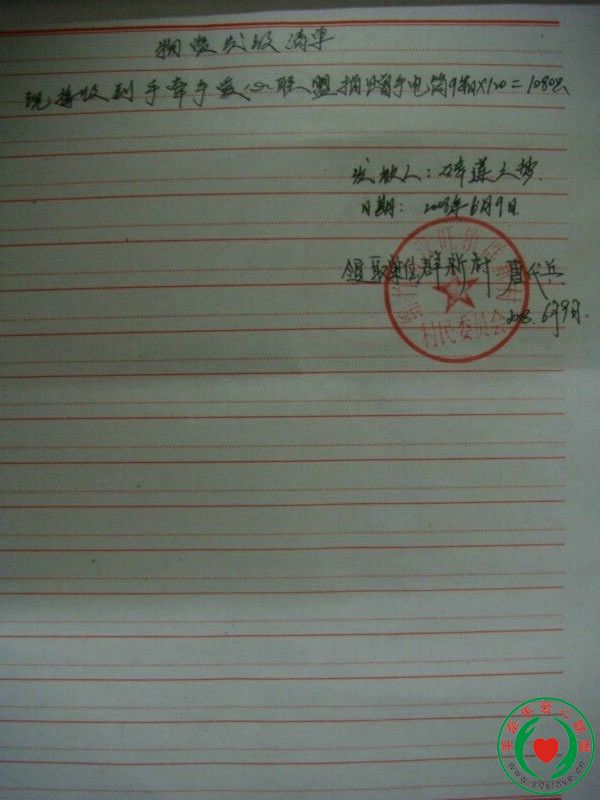 物资发放清单
现接收到手牵手爱心联盟捐赠手电筒9箱X120=1080只
发放人：碎莲之梦
日期：2008年6月9日
领取单位群新村 唐代兵
2008.6月9日
旺镇群新村
村民委员会
手牵手爱心联盟
www.sqslove.cn